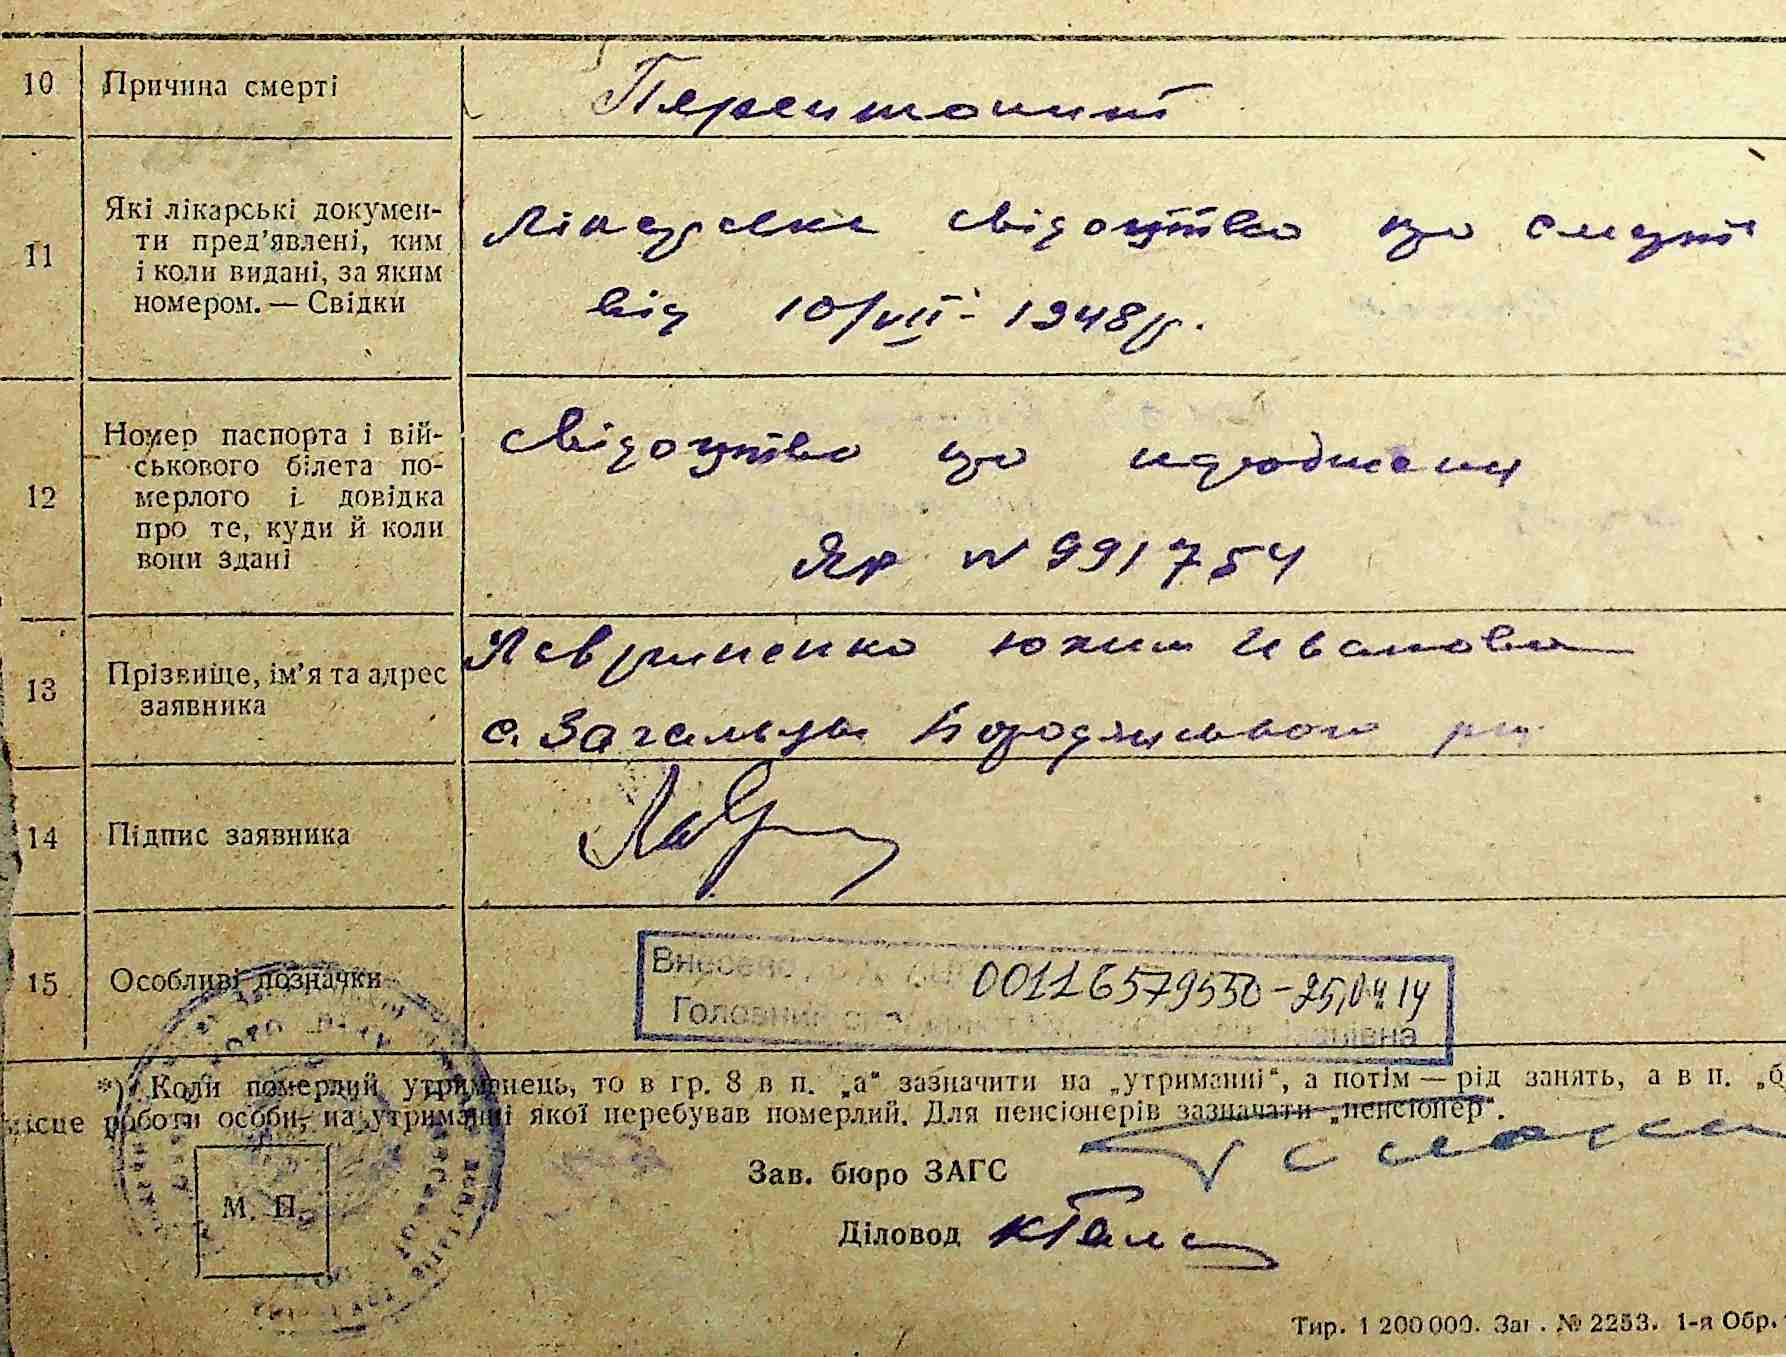 10 Причина смерті Перитонит
11 Які лікарські докумен-
ти пред'явлені, ким
і коли видані, за яким
номером. — Свідки
Лікарське свідоцтво про смерть
від 10/VII - 1948 р.
12 Номер паспорта і вій-
ськового білета по-
мерлого і довідка
про те, куди й коли
вони здані
Свідоцтво про народження
ЯР N 991754
13 Прізвище, ім'я та адрес
заявника
Иванова
с. Загальцы Бородянського
14 Підпис заявника
15 Особливі позначки
Внесено 00116579550 - 25,04 14
*) Коли померлий утриманець, то в гр. 8 в п. „а“ зазначити на „утриманні“, а потім — рід занять, а в п. „б
місце роботи особи, на утриманні якої перебував померлий. Для пенсіонерів зазначати „пенсіонер“.
Зав. бюро ЗАГС
М. П.
Діловод
Тир. 1 200 000. Заг. № 2253. 1-я Обр.